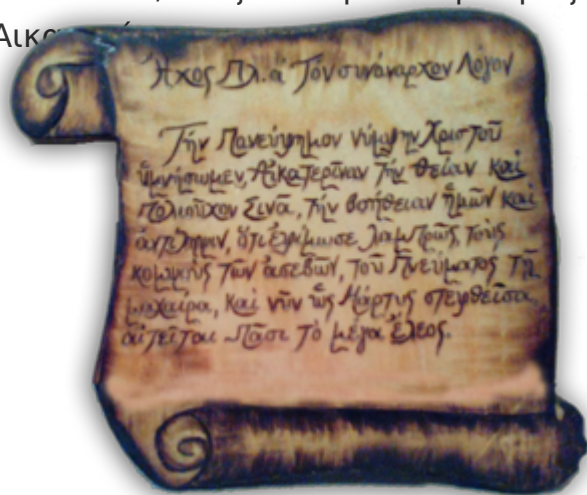 Ἦχος Πλ. ά Τόν συνάναρχον Λόγον
Τήν Πανεύφημον νύμφην Χριστοῦ
ὑμνήσωμεν, Αἰκατερῖναν τήν θείαν καί
πολιοῦχον Σινᾶ, τήν βοήθειαν ἡμῶν καί
ἀντίληψιν, ὅτι ἐφίμωσε λαμπρῶς, τούς
κομψούς τῶν ἀσεβῶν, τοῦ Πνεύματος τῇ
μαχαίρα, καί νῦν ὡς Μάρτυς στεφθεῖσα,
αἰτεῖται πᾶσι τό μέγα ἔλεος.